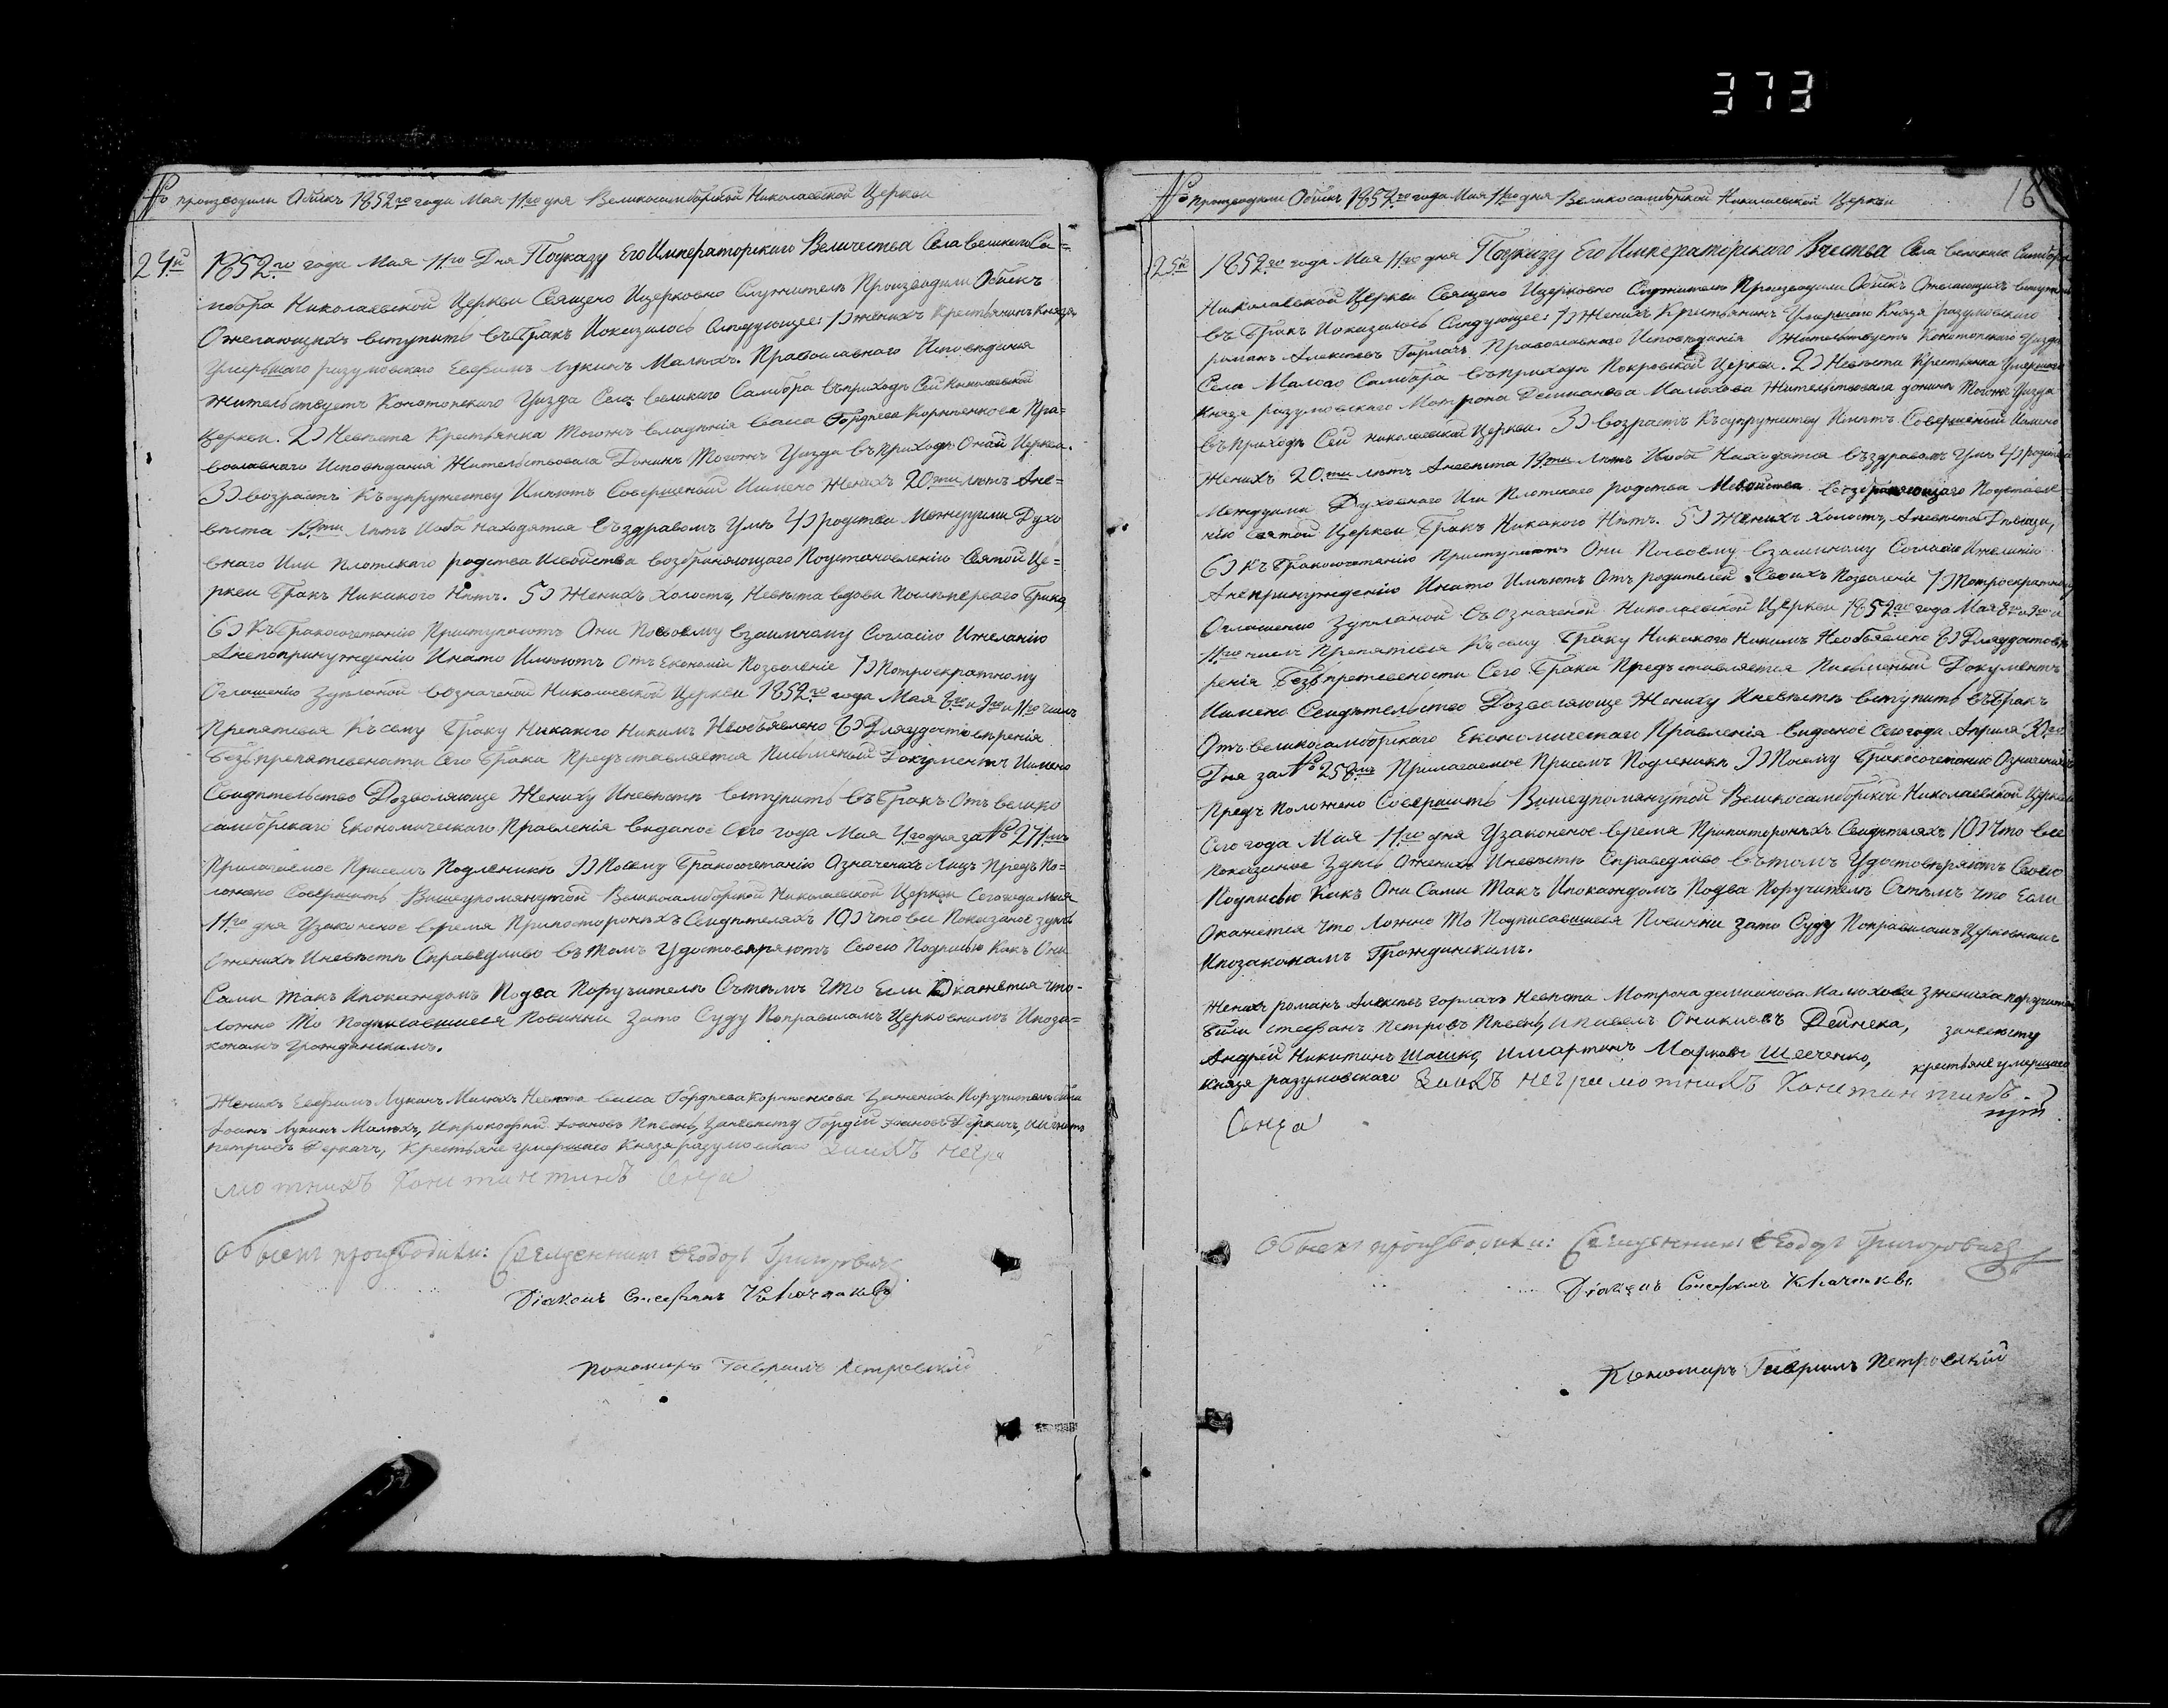 373
№ производили Обыскъ 1852го года Мая 11го дня Великосамборской Николаевской Церкви
24й
1852го года Мая 11го Дня Поуказу Его Императорскаго Величества Села великого Са=
мбора Николаевской Церкви Священо Ицерковно Служители Производили Обыскъ
Ожелающихъ вступить въ Бракъ Иоказалось Следующее: 1) женихъ Крестьянинъ Князя
Умершаго разумовскаго Евфимъ Лукинъ Малюхъ. Православнаго Исповеданія
Жительствуетъ Конотопскаго Уизда Села великаго Самбора въ приходе Сей Николаевской
Церкви. 2) Невеста Крестьянка Тогожъ владенія васса Гордеева Корнеенкова Пра=
вославнаго Исповеданія Жительствовала Донинъ Тогожъ Уизда въ приходе Оной Церкви.
3) возрастъ Къ супружеству Имеютъ Совершеный Иимено Женихъ 20ти летъ Ане=
веста 19ти летъ Иоба находятся въ здравомъ Уме 4) родства Междуими Духо
внаго Или плотскаго родства Исвойства возбраняющаго Поустановленію Святой Це=
ркви Бракъ Никакого Нетъ. 5) Женихъ холостъ, Невеста вдова Послепервого Брака
6) Къ Бракосочетанію Приступаютъ Они Посвоему взаимному Согласію Ижеланію
Анепопринужденію Инато Имеютъ Отъ Економіи Позволеніе 7) Потроекратному
Оглашенію Зделаной возначеной Николаевской Церкви 1852го года Мая 8го и 9го и 11го числъ
Препятствія Къ сему Браку Никакого Никимъ Необъявлено 8) Дляудостоверенія
Безпрепятственати Сего Брака Предъставляется Письменый Документъ Иимено
Свидетельство Дозволяюще Жениху Иневесте вступить въ Бракъ Отъ велико
самборскаго Економическаго Правленія виданое Сего года Мая 4го дня за № 271мъ
Прилагаемое Присемъ Подленике 9) Посему Бракосочетанію Означеныхъ Лицъ Предъ По=
ложено Совершить Вишеупомянутой Великосамборской Николаевской Церкви Сегогода Мая
11го дня Узаконеное время Припостороныхъ Свидетеляхъ 10) Что все Показаное здесь
Ожених Иневесте Справедливо въ томъ Удостоверяютъ Своею Подписью Какъ Они
Сами такъ Ипокаждомъ Подва Поручителе Сътемъ Что Если Окажется что-
ложно То Подписавшиеся Повинни Зато Суду Поправиламъ Церковнимъ Ипоза=
конамъ гражданскимъ.
Женихъ Евфимъ Лукинъ Малюхъ Невеста васса Гордеева Корнеенкова Зажениха Поручители били
Іоанъ Лукинъ Малюхъ, Ипрокофий Іоановъ Певень, Заневесту Гордей Іоановъ Деркачъ, Иигнатъ
петровъ Деркачъ, Крестьяне умершаго Князя разумовскаго Заихъ негра
мотнихъ Константинъ Сенча
Обыскъ производили: Священникъ Ѳеодоръ Григоровичъ
Діаконъ Стефанъ
Пономарь Гавриилъ Петровский
16
№ Производили Обыскъ 1852го года Мая 11го дня Великосамборской Николаевской Церкви
25й
1852го года Мая 11го дня Поуказу Его Императорскаго Вчества Села великого Самбора
Николаевской Церкви Священо Ицерковно Служители Производили Обыскъ Ожелающихъ вступить
въ Бракъ Иоказалось Следующее: 1) Женихъ Крестьянинъ Умершаго Князя разумовского
романъ Алексеевъ Горлачъ Православнаго Исповеданія Жительствуетъ Конотопскаго Уизда
Села Малого Самбора въ приходе Покровской Церкви. 2) Невеста Крестьянка Умершаго
Князя разумовскаго Мотрона Демиянова Малюхова Жительствовала донинъ Тогожъ Уизда
въ приходе Сей николаевской Церкви. 3) возрастъ Късупружеству Имеютъ Совершеный Иимено
Женихъ 20ти летъ Аневеста 19ти летъ Иоба Находятся въ здравомъ Уме 4) родства
Междуими Духовнаго Или Плотскаго родства Исвойства возбраняющаго Поустановле=
нію Святой Церкви Бракъ Никакого Нетъ. 5) Женихъ Холостъ, Аневеста Девица,
6) Къ Бракосочетанію Приступаютъ Они Посвоему взаимному Согласію Ижеланію
Анепринужденію Инато Имеютъ Отъ родителей Своихъ Позволеніе 7) Потроекратному
Оглашенію Зделаной възначеной Николаевской Церкви 1852го года Мая 8го и 9го и
11го числъ Препятствія Къ сему Браку Никакого Никимъ Необъявлено 8) Дляудостове
ренія Безпретсвености Сего Брака Предъставляется Письменый Документъ
Иимено Свидетельство Дозволяюще Жениху Иневесте вступить въ Бракъ
Отъ великосамборскаго Економическаго Правленія виданое Сего года Апреля 30го
Дня за № 258мъ Прилагаемое Присемъ Подленике 9) Посему Бракосочетанію Означеныхъ
Предъ положено Совершить Вишеупомянутой Великосамборской Николаевской Церкви
Сего года Мая 11го дня Узаконеное время Припостороныхъ Свидетеляхъ 10) Что все
Показаное Здесь Ожених Иневесте Справедливо вътомъ Удостоверяютъ Своею
Подписью Какъ Они Сами Такъ Ипокаждомъ Подва Поручителе Сътемъ Что Если
Окажется Что Ложно То Подписавшиеся Повинни Зато Суду Поправиламъ Церковнимъ
Ипозаконамъ Гражданскимъ.
Женихъ романъ Алексеевъ горлачъ Невеста Мотрона демиянова малюхова Зажениха поручители
били стефанъ Петровъ Певень, ипавелъ Оникиевъ Дейнека, заневесту
Андрей Никитинъ Шашко, имартинъ Марковъ Шевченко, крестьяне умершаго
Князя разумовскаго Заихъ неграмотнихъ Константинъ
Сенча
Обыскъ производили: Священникъ Ѳеодоръ Григоровичъ
Діаконъ Стефанъ
Пономарь Гавриилъ Петровский